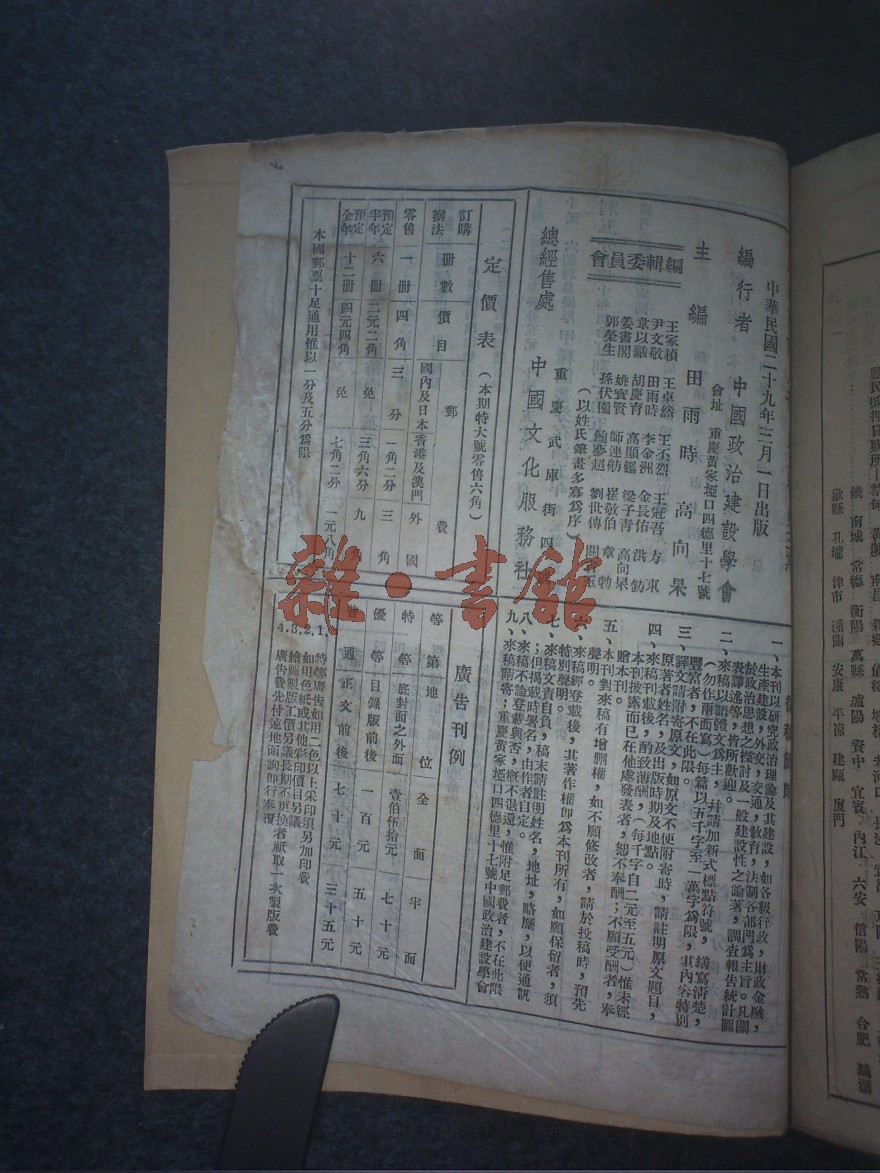 中華民國二十九年三月一日出版
編行者 中國政治建設學會
會址 重慶黃家埡口四德里十七號
主編 田雨時 高向杲
編輯委員會
王家楨 王卓然 王丕烈 王冠吾 方東
尹文敬 田雨時 李金洲 金長佑 洪鈁
章以黻 胡慶育 高顯鑑 梁子青 高向杲
姜書閣 姚寶賢 師連舫 崔敬伯 章勃
郭榮生 孫伏園 鮑夢超 劉世傳
(以姓氏筆畫多寡為序)
總經售處 中國文化服務社
重慶武庫街四
定價表 (本期特大號零售六角)
訂購辦法 冊數 價目 郵費
國內及日本 香港及澳門 外國
零售 一冊 四角 三分 一角二分 三角
預定半年 六冊 二元二角 免 三角六分 九角
預定全年 十二冊 四元四角 免 七角二分 一元八角
本國郵票十足通用惟以一分及五分為限
一、本刊以研究政治理論及其建設,如各級行政,財政金融,
生產建設,外交,交通,教育,法制各部門為主旨。凡關
於政治思想之探討及一般建設性之論著,調查報告統計圖
表譯述等,皆所歡迎。
二、來稿以語體文為主,并請加新式標點符號,繕寫清楚,
(勿作兩面寫)每篇以五千字至一萬字為限,其內容特別
豐富者,不在此限。
三、譯文請附寄原文,如原文不便附寄時,請註明原文題目,
原著者姓名,及出版時期及地點。
四、來稿刊載後,酌致薄酬,(每千字自二元至五元)惟未經
本刊披露而已在他處發表者,恕不奉酬;不願受酬者,奉
贈本刊。
五、本刊對來稿有增刪權,如不願修改者,請於投稿時,預先
聲明。
六、來稿經登載後,其著作權即為本刊所有,如願保留者,須
特別聲明。
七、來稿文責自負,稿末請註明姓名,地址,略歷,以便通訊
;但揭載時署名,由作者自定。
八、來稿不論登載與否,概不退還,惟附足郵費者,不在此限
九、來稿請寄:重慶黃家埡口四德里十七號中國政治建設學會
廣告刊例
等第 地位 全面 半面
特等 底封面之外面 壹佰伍拾元 七十元
優等 目錄版前後 一百元 五十元
普通 正文前後 七十元 三十五元
1. 特等廣告如用二色以上采印須另加印費
2. 如用色紙或其他彩印價目另議
3. 繪圖製版工價另議長期不更換者祇取一次製版費
4. 廣告費先付遠地函詢即行奉覆
饒 南城 常德 衡陽 萬縣 瀘陽 資中 宜賓 內江 六安 信陽 常熟 合肥
歙縣 孔壠 津市 潼關 安康 平涼 建甌 廈門
雜·書館